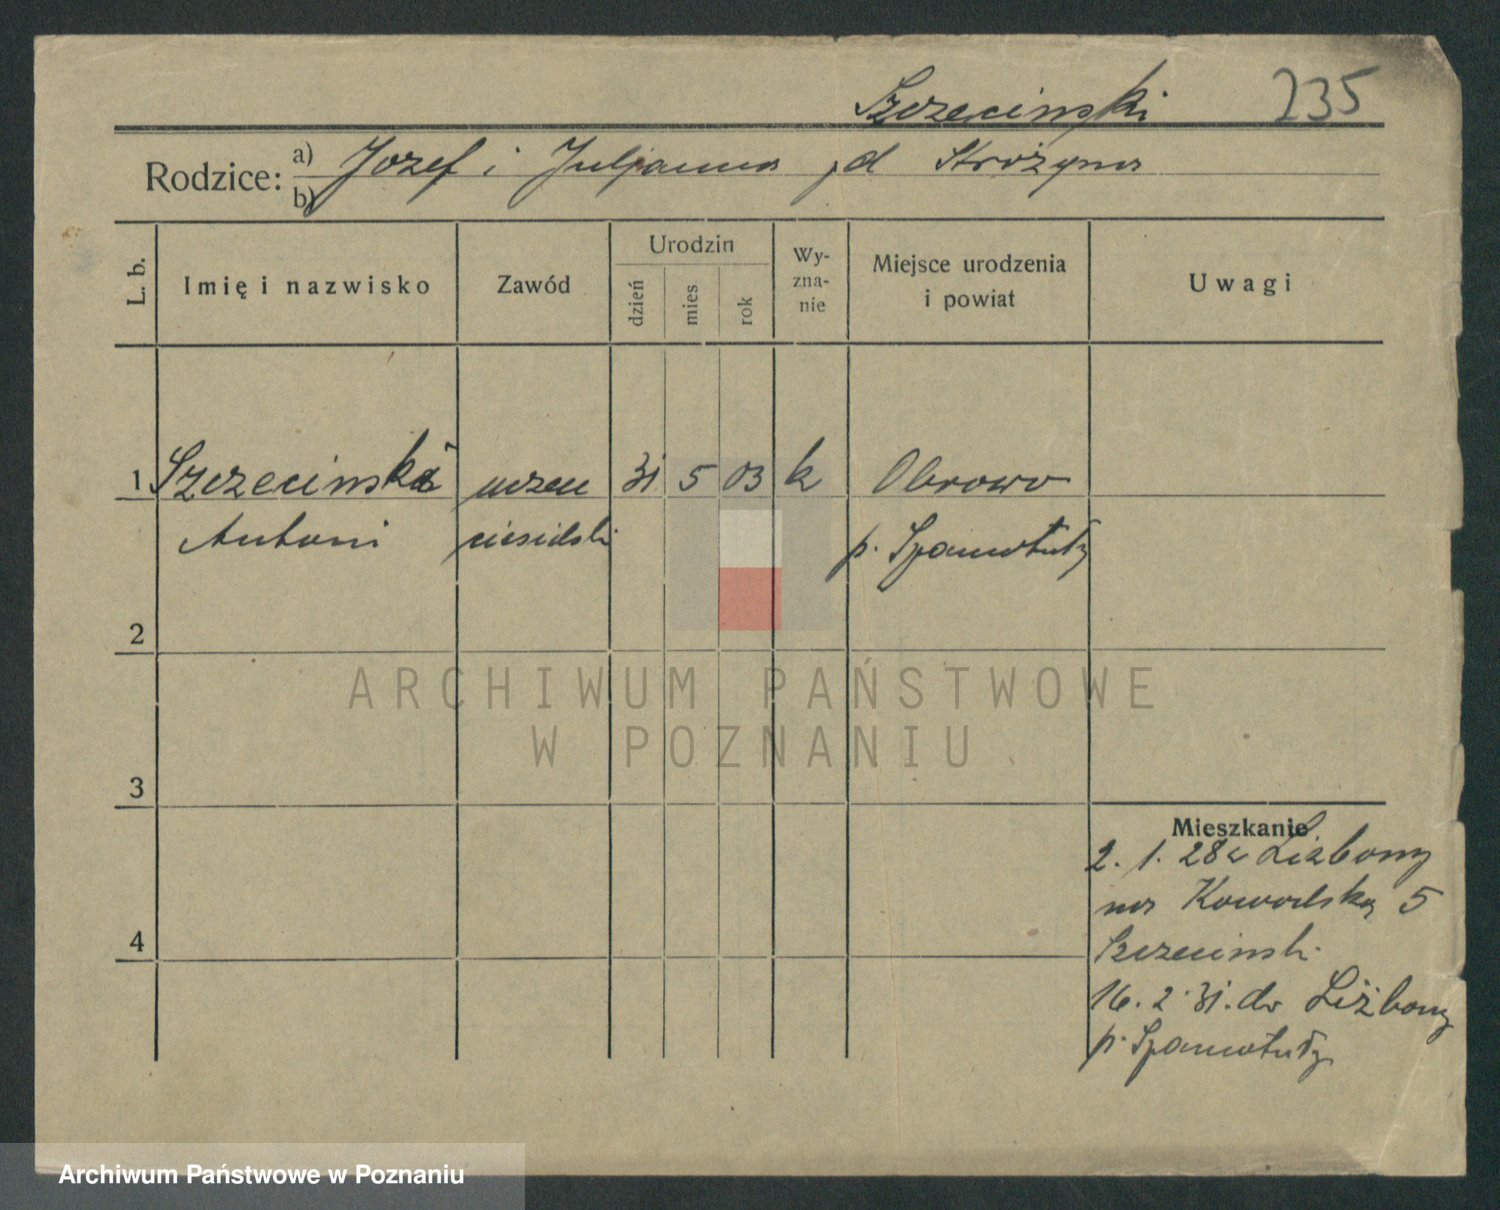 Szczecinski 235
Rodzice: a) Jozef i Juljanna z d Strożyna
b)
L. b. Imię i nazwisko Zawód Urodzin dzień mies rok Wy-zna-nie Miejsce urodzenia i powiat Uwagi
1 Szczecinski uczeń 31 5 03 k Obrowo
Antoni ciesielski p. Szamotuły
2
ARCHIWUM PAŃSTWOWE
W POZNANIU
3
Mieszkanie
2. 1. 28 z Lizbony
na Kowalską 5
4
Szczecinski
16. 2. 31. do Liżbony
p. Szamotuły
Archiwum Państwowe w Poznaniu